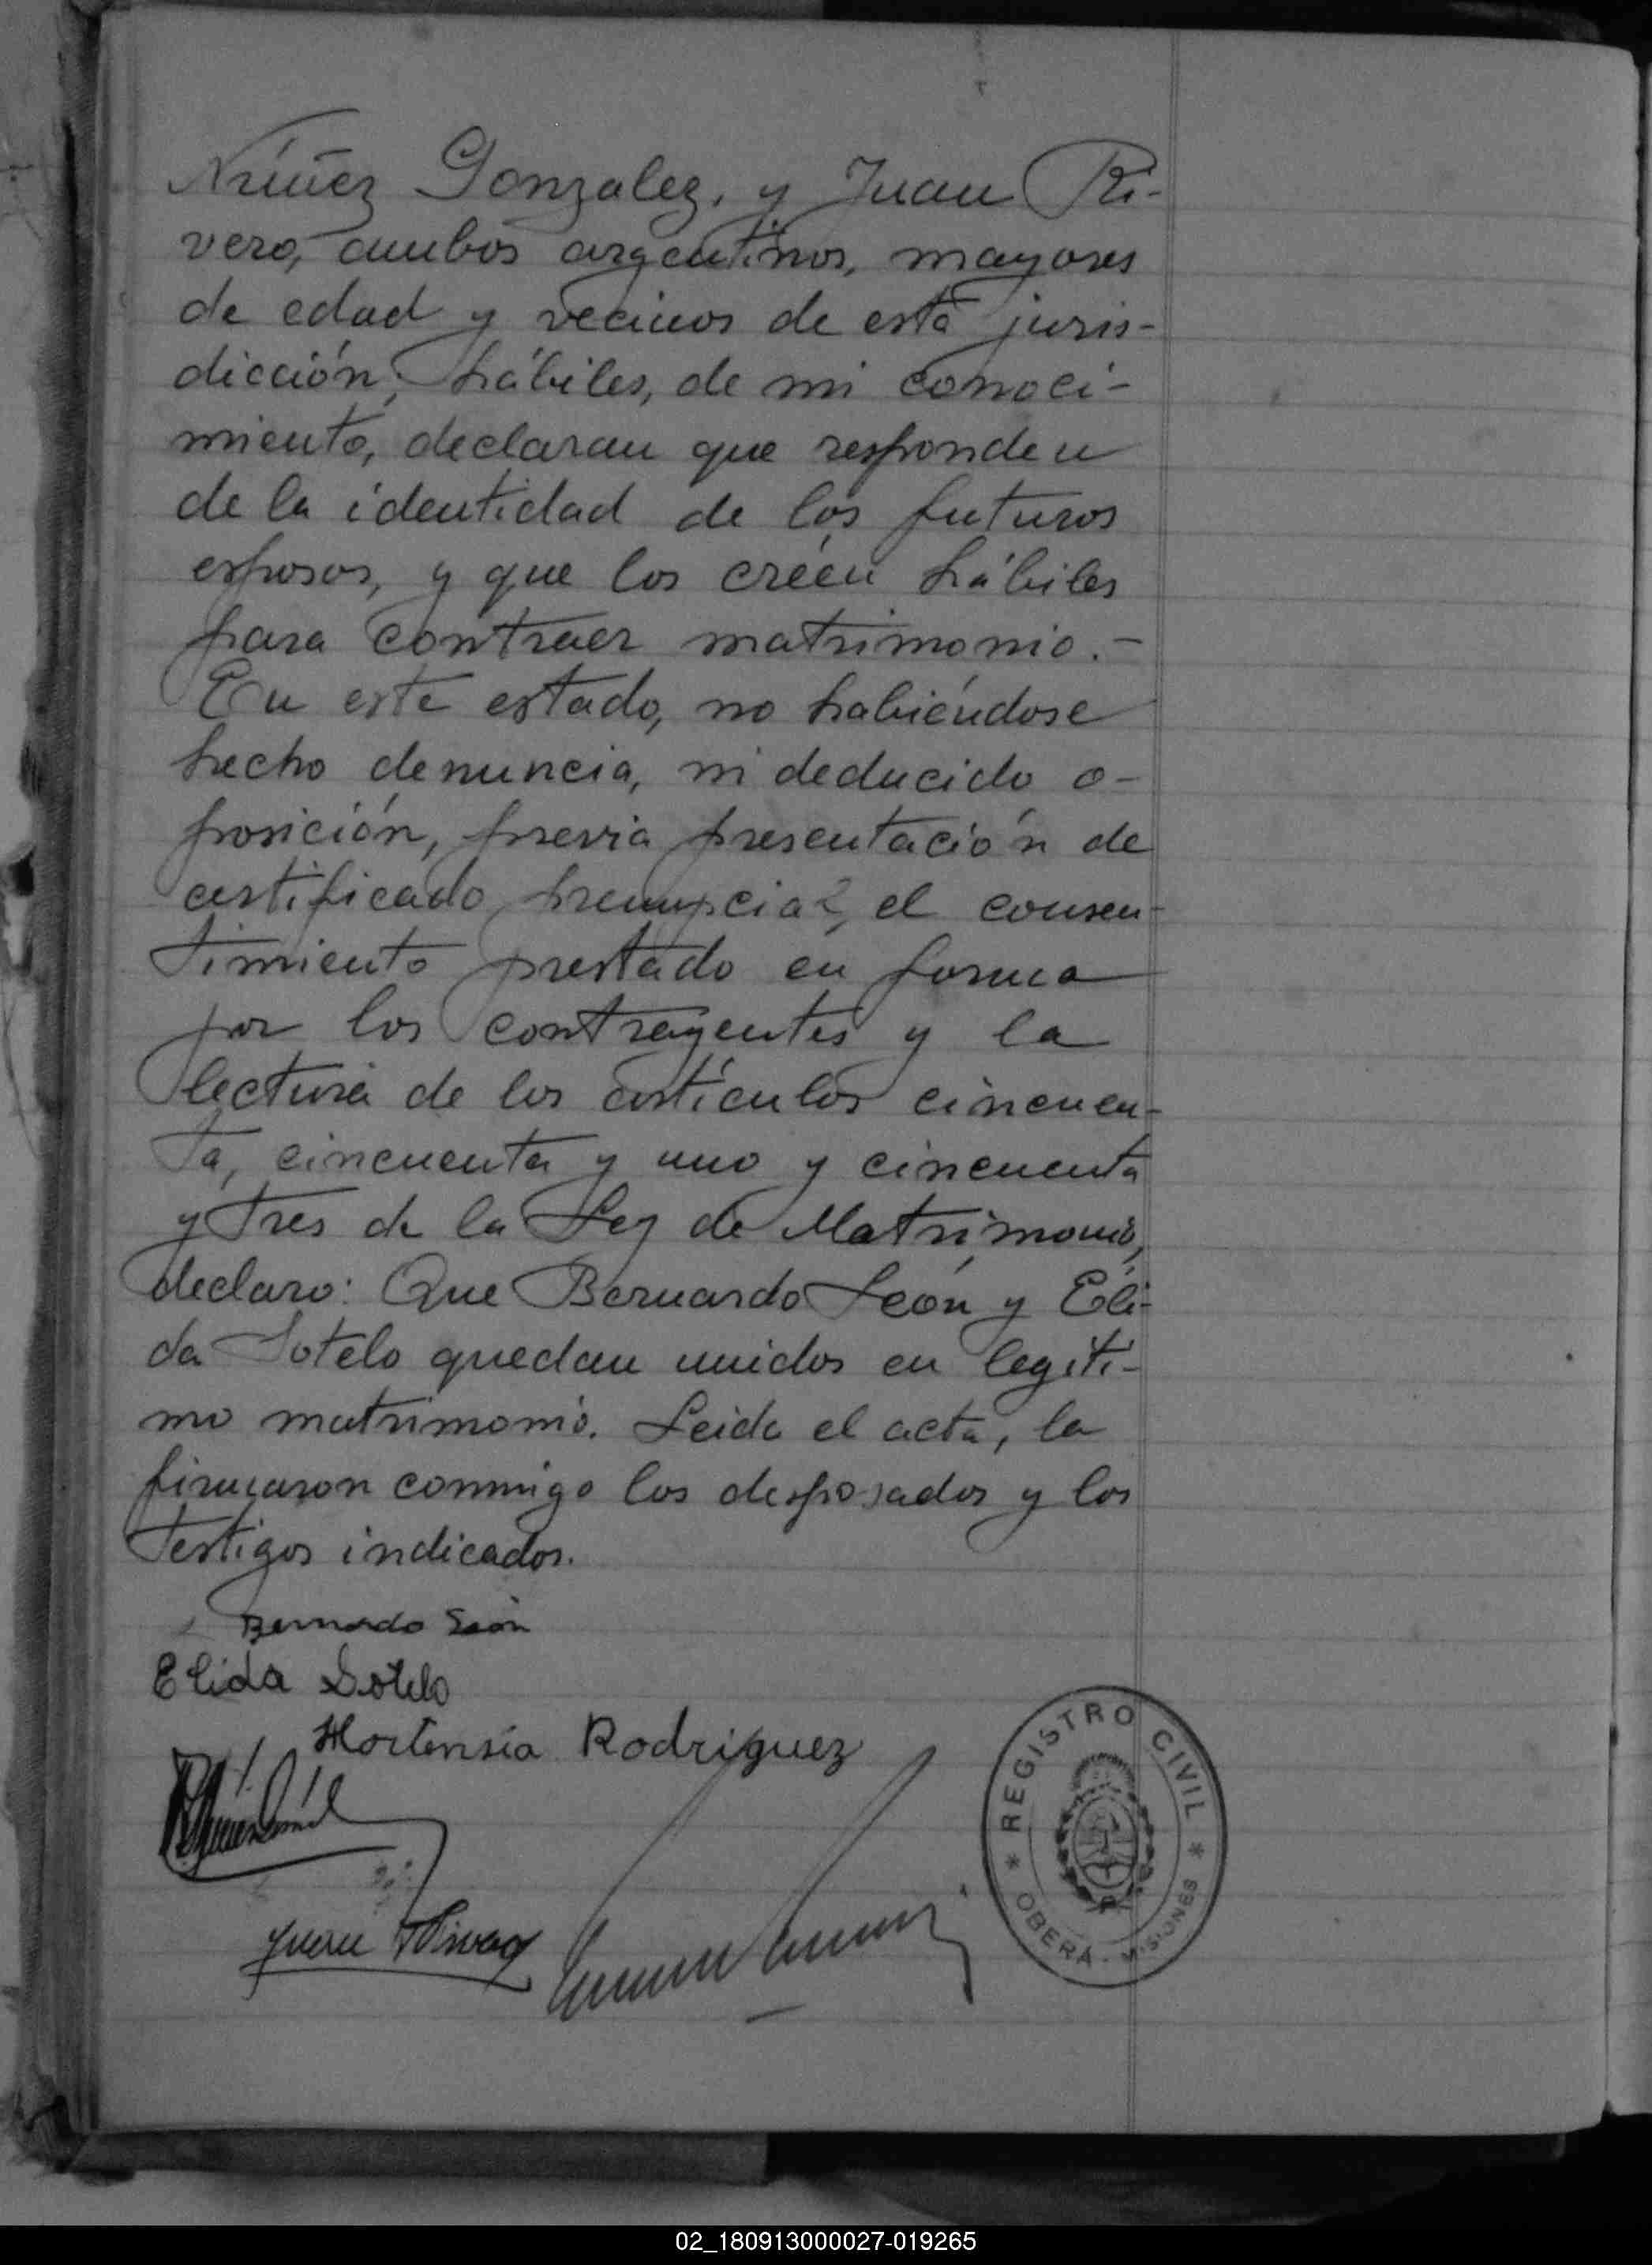 Núñez Gonzalez, y Juan Ri-
vero, ambos argentinos, mayores
de edad y vecinos de esta juris-
dicción, hábiles, de mi conoci-
miento, declaran que responden
de la identidad de los futuros
esposos, y que los créen hábiles
para contraer matrimonio.-
En este estado, no habiéndose
hecho denuncia, ni deducido o-
posición, previa presentación de
certificado prenupcial, el consen-
timiento prestado en forma
por los contrayentes y la
lectura de los artículos cincuen-
ta, cincuenta y uno y cincuenta
y tres de la Ley de Matrimonio,
declaro: Que Bernardo León y Eli-
da Sotelo quedan unidos en legíti-
mo matrimonio. Leida el acta, la
firmaron conmigo los desposados y los
testigos indicados.
Bernardo León
Elida Sotelo
Hortensia Rodriguez
Juan
REGISTRO CIVIL
OBERA - MISIONES
02_180913000027-019265